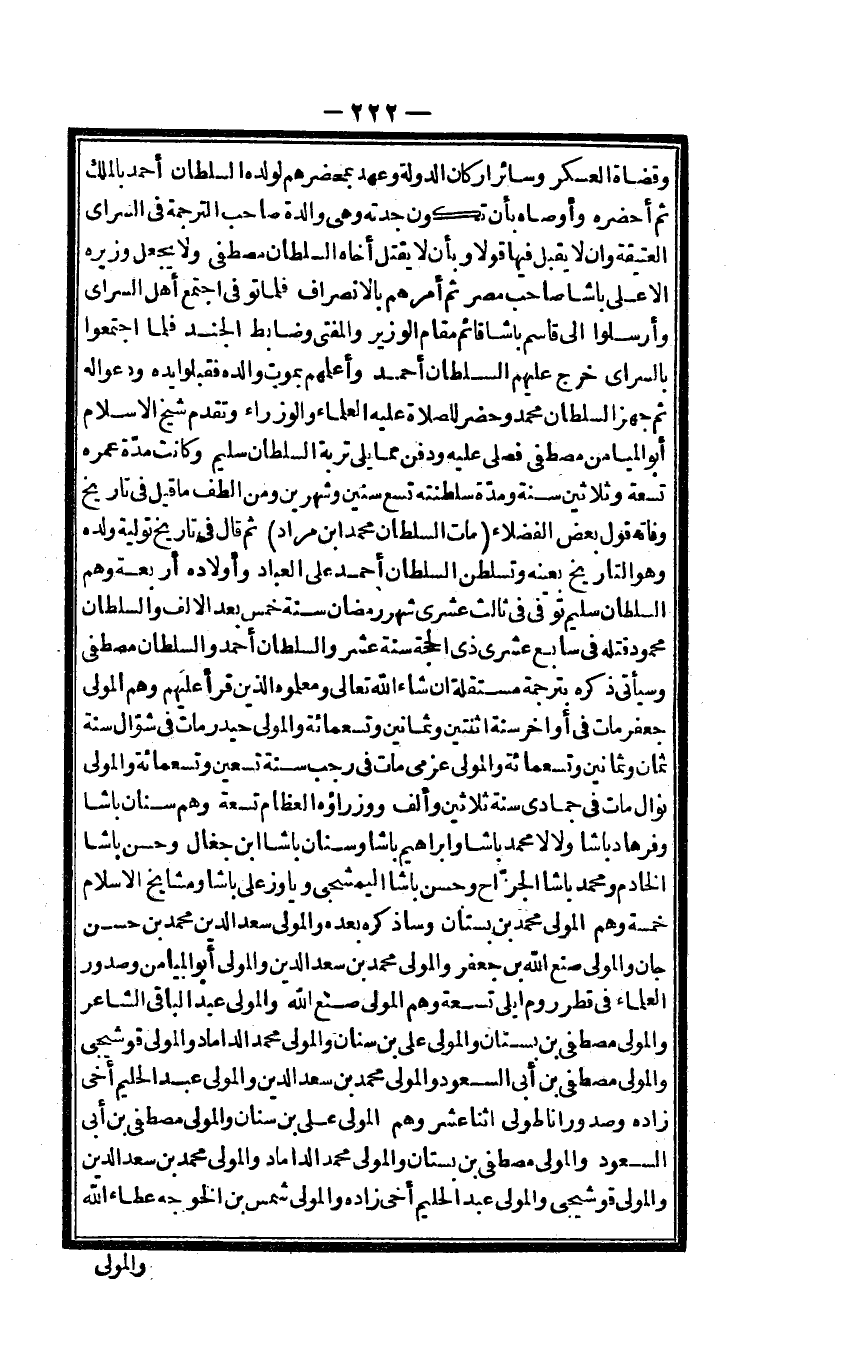 — ٢٢٢ —
وقضاة العسكر وسائر اركان الدولة وعهد بمحضرهم لولده السلطان أحمد بالملك
ثم أحضره وأوصاه بأن تكون جدته وهى والدة صاحب الترجمة فى السراى
العتيقة وان لا يقبل فيها قولا وبأن لا يقتل أخاه السلطان مصطفى ولا يجعل وزيره
الاعلى باشا صاحب مصر ثم أمرهم بالانصراف فلما توفى اجتمع أهل السراى
وأرسلوا الى قاسم باشا قائم مقام الوزير والمفتى وضابط الجند فلما اجتمعوا
بالسراى خرج عليهم السلطان أحمد وأعلهم بموت والده فقبلوا يده ودعواله
ثم جهز السلطان محمد وحضر للصلاة عليه العلماء والوزراء وتقدم شيخ الاسلام
أبو الميامن مصطفى فصلى عليه ودفن مما يلى تربة السلطان سليم وكانت مدّة عمره
تسعة وثلاثين سنة ومدّة سلطنته تسع سنين وشهرين ومن الطف ما قيل فى تاريخ
وفاته قول بعض الفضلاء (مات السلطان محمد ابن مراد) ثم قال فى تاريخ تولية ولده
وهو التاريخ بعينه وتسلطن السلطان أحمد على العباد وأولاده أربعة وهم
السلطان سليم توفى فى ثالث عشرى شهر رمضان سنة خمس بعد الالف والسلطان
محمود قتله فى سابع عشرى ذى الحجة سنة عشر والسلطان أحمد والسلطان مصطفى
وسيأتى ذكره بترجمة مستقلة ان شاء الله تعالى ومعلموه الذين قرأ عليهم وهم المولى
جعفر مات فى أواخر سنة اثنتين وثمانين وتسعمائة والمولى حيدر مات فى شوّال سنة
ثمان وثمانين وتسعمائة والمولى عزمى مات فى رجب سنة تسعين وتسعمائة والمولى
نوال مات فى جمادى سنة ثلاثين وألف ووزراؤه العظام تسعة وهم سنان باشا
وفرهاد باشا ولالا محمد باشا وابراهيم باشا وسنان باشا ابن جغال وحسن باشا
الخادم ومحمد باشا الجرّاح وحسن باشا اليمشجى وياوز على باشا ومشايخ الاسلام
خمسة وهم المولى محمد بن بستان وسأذكره بعده والمولى سعد الدين محمد بن حسن
جان والمولى صنع الله بن جعفر والمولى محمد بن سعد الدين والمولى أبو الميامن وصدور
العلماء فى قطر روم ايلى تسعة وهم المولى صنع الله والمولى عبد الباقى الشاعر
والمولى مصطفى بن بستان والمولى على بن سنان والمولى محمد الداماد والمولى قوشيجى
والمولى مصطفى بن أبى السعود والمولى محمد بن سعد الدين والمولى عبد الحليم أخى
زاده وصدور اناطولى اثنا عشر وهم المولى على بن سنان والمولى مصطفى بن أبى
السعود والمولى مصطفى بن بستان والمولى محمد الداماد والمولى محمد بن سعد الدين
والمولى قوشيجى والمولى عبد الحليم أخى زاده والمولى شمس بن الخوجه عطاء الله
والمولى